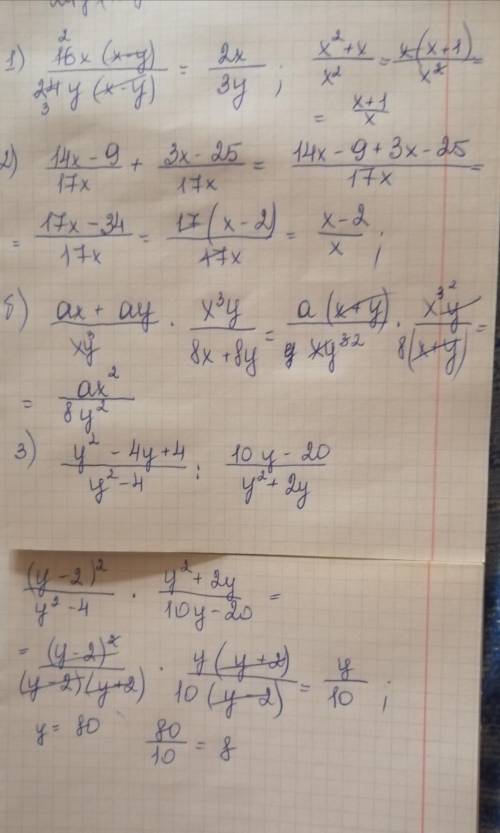 1) 16x (x-y) / 24y (x-y) = 2x / 3y ; x²+x / x² = x(x+1) / x² =
2
3
= x+1 / x
2) 14x - 9 / 17x + 3x - 25 / 17x = 14x - 9 + 3x - 25 / 17x =
= 17x - 34 / 17x = 17(x-2) / 17x = x-2 / x ;
б) ax + ay / xy³ · x³y / 8x + 8y = a (x+y) / xy³² · x³²y / 8(x+y) =
= ax² / 8y²
3) y² - 4y + 4 / y² - 4 : 10y - 20 / y² + 2y
(y-2)² / y² - 4 · y² + 2y / 10y - 20 =
= (y-2)² / (y-2)(y+2) · y(y+2) / 10(y-2) = y / 10 ;
y = 80 80 / 10 = 8